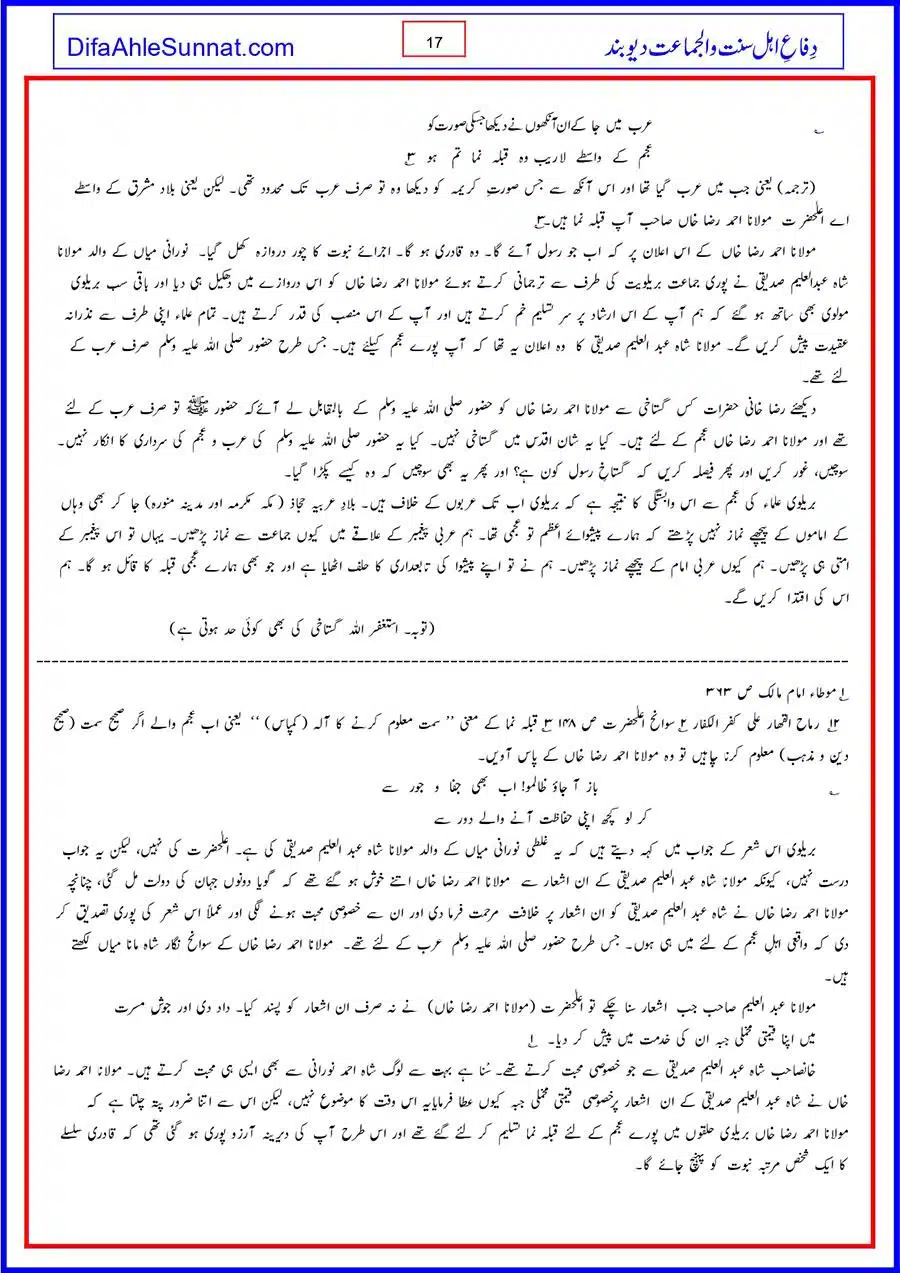 DifaAhleSunnat.com
17
دِفاعِ اہل سنت والجماعت دیوبند
عرب میں جا کے ان آنکھوں نے دیکھا جسکی صورت کو
عجم کے واسطے لاریب وہ قبلہ نما تم ہو ۳
(ترجمہ) یعنی جب میں عرب گیا تھا اور اس آنکھ سے جس صورتِ کریمہ کو دیکھا وہ تو صرف عرب تک محدود تھی۔ لیکن یعنی بلاد مشرق کے واسطے
اے اعلٰحضرت مولانا احمد رضا خاں صاحب آپ قبلہ نما ہیں۔۳
مولانا احمد رضا خاں کے اس اعلان پر کہ اب جو رسول آئے گا۔ وہ قادری ہو گا۔ اجرائے نبوت کا چور دروازہ کھل گیا۔ نورانی میاں کے والد مولانا
شاہ عبدالعلیم صدیقی نے پوری جماعت بریلویت کی طرف سے ترجمانی کرتے ہوئے مولانا احمد رضا خاں کو اس دروازے میں دھکیل ہی دیا اور باقی سب بریلوی
مولوی بھی ساتھ ہو گئے کہ ہم آپ کے اس ارشاد پر سر تسلیم خم کرتے ہیں اور آپ کے اس منصب کی قدر کرتے ہیں۔ تمام علماء اپنی طرف سے نذرانہ
عقیدت پیش کریں گے۔ مولانا شاہ عبد العلیم صدیقی کا وہ اعلان یہ تھا کہ آپ پورے عجم کیلئے ہیں۔ جس طرح حضور صلی اللہ علیہ وسلم صرف عرب کے
لئے تھے۔
دیکھئے رضا خانی حضرات کس گستاخی سے مولانا احمد رضا خاں کو حضور صلی اللہ علیہ وسلم کے بالمقابل لے آئے کہ حضور ﷺ تو صرف عرب کے لئے
تھے اور مولانا احمد رضا خاں عجم کے لئے ہیں۔ کیا یہ شان اقدس میں گستاخی نہیں۔ کیا یہ حضور صلی اللہ علیہ وسلم کی عرب و عجم کی سرداری کا انکار نہیں۔
سوچیں، غور کریں اور پھر فیصلہ کریں کہ گستاخ رسول کون ہے؟ اور پھر یہ بھی سوچیں کہ وہ کیسے پکڑا گیا۔
بریلوی علماء کی عجم سے اس وابستگی کا نتیجہ ہے کہ بریلوی اب تک عربوں کے خلاف ہیں۔ بلادِ عربیہ حجاذ (مکہ مکرمہ اور مدینہ منورہ) جا کر بھی وہاں
کے اماموں کے پیچھے نماز نہیں پڑھتے کہ ہمارے پیشوائے اعظم تو عجمی تھا۔ ہم عربی پیغمبر کے علاقے میں کیوں جماعت سے نماز پڑھیں۔ یہاں تو اس پیغمبر کے
امتی ہی پڑھیں۔ ہم کیوں عربی امام کے پیچھے نماز پڑھیں۔ ہم نے تو اپنے پیشوا کی تابعداری کا حلف اٹھایا ہے اور جو بھی ہمارے عجمی قبلہ کا قائل ہو گا۔ ہم
اس کی اقتدا کریں گے۔
(توبہ۔ استغفر اللہ گستاخی کی بھی کوئی حد ہوتی ہے)
۱ موطاء امام مالک ص ۳۶۳
۱۲ رماح القھار علی کفر الکفار ۲ سوانح اعلٰحضرت ص ۱۴۸ ۳ قبلہ نما کے معنی ’’سمت معلوم کرنے کا آلہ (کمپاس)‘‘ یعنی اب عجم والے اگر صحیح سمت (صحیح
دین و مذہب) معلوم کرنا چاہیں تو وہ مولانا احمد رضا خاں کے پاس آویں۔
باز آ جاؤ ظالمو! اب بھی جفا و جور سے
کر لو کچھ اپنی حفاظت آنے والے دور سے
بریلوی اس شعر کے جواب میں کہہ دیتے ہیں کہ یہ غلطی نورانی میاں کے والد مولانا شاہ عبد العلیم صدیقی کی ہے۔ اعلٰحضرت کی نہیں، لیکن یہ جواب
درست نہیں، کیونکہ مولانا شاہ عبد العلیم صدیقی کے ان اشعار سے مولانا احمد رضا خاں اتنے خوش ہو گئے تھے کہ گویا دونوں جہان کی دولت مل گئی، چنانچہ
مولانا احمد رضا خاں نے شاہ عبد العلیم صدیقی کو ان اشعار پر خلافت مرحمت فرما دی اور ان سے خصوصی محبت ہونے لگی اور عملاً اس شعر کی پوری تصدیق کر
دی کہ واقعی اہلِ عجم کے لئے میں ہی ہوں۔ جس طرح حضور صلی اللہ علیہ وسلم عرب کے لئے تھے۔ مولانا احمد رضا خاں کے سوانح نگار شاہ مانا میاں لکھتے
ہیں۔
مولانا عبد العلیم صاحب جب اشعار سنا چکے تو اعلٰحضرت (مولانا احمد رضا خاں) نے نہ صرف ان اشعار کو پسند کیا۔ داد دی اور جوش مسرت
میں اپنا قیمتی مخملی جبہ ان کی خدمت میں پیش کر دیا۔ ۱
خانصاحب شاہ عبد العلیم صدیقی سے جو خصوصی محبت کرتے تھے۔ سُنا ہے بہت سے لوگ شاہ احمد نورانی سے بھی ایسی ہی محبت کرتے ہیں۔ مولانا احمد رضا
خاں نے شاہ عبد العلیم صدیقی کے ان اشعار پرخصوصی قیمتی مخملی جبہ کیوں عطا فرمایا یہ اس وقت کا موضوع نہیں، لیکن اس سے اتنا ضرور پتہ چلتا ہے کہ
مولانا احمد رضا خاں بریلوی حلقوں میں پورے عجم کے لئے قبلہ نما تسلیم کر لئے گئے تھے اور اس طرح آپ کی دیرینہ آرزو پوری ہو گئی تھی کہ قادری سلسلے
کا ایک شخص مرتبہ نبوت کو پہنچ جائے گا۔